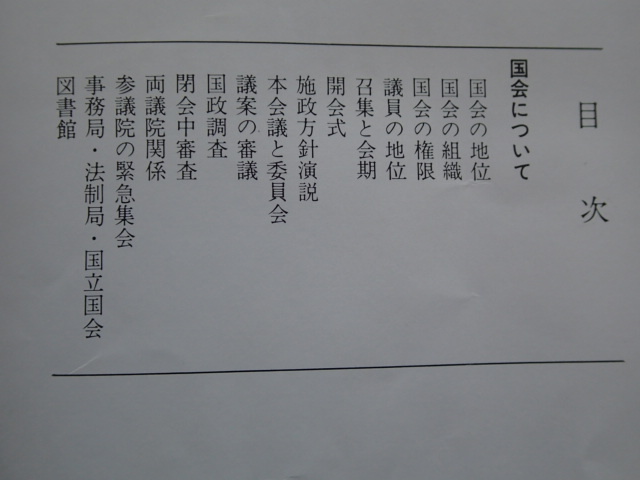 目次
国会について
国会の地位
国会の組織
国会の権限
議員の地位
召集と会期
開会式
施政方針演説
本会議と委員会
議案の審議
国政調査
閉会中審査
両議院関係
参議院の緊急集会
事務局・法制局・国立国会
図書館